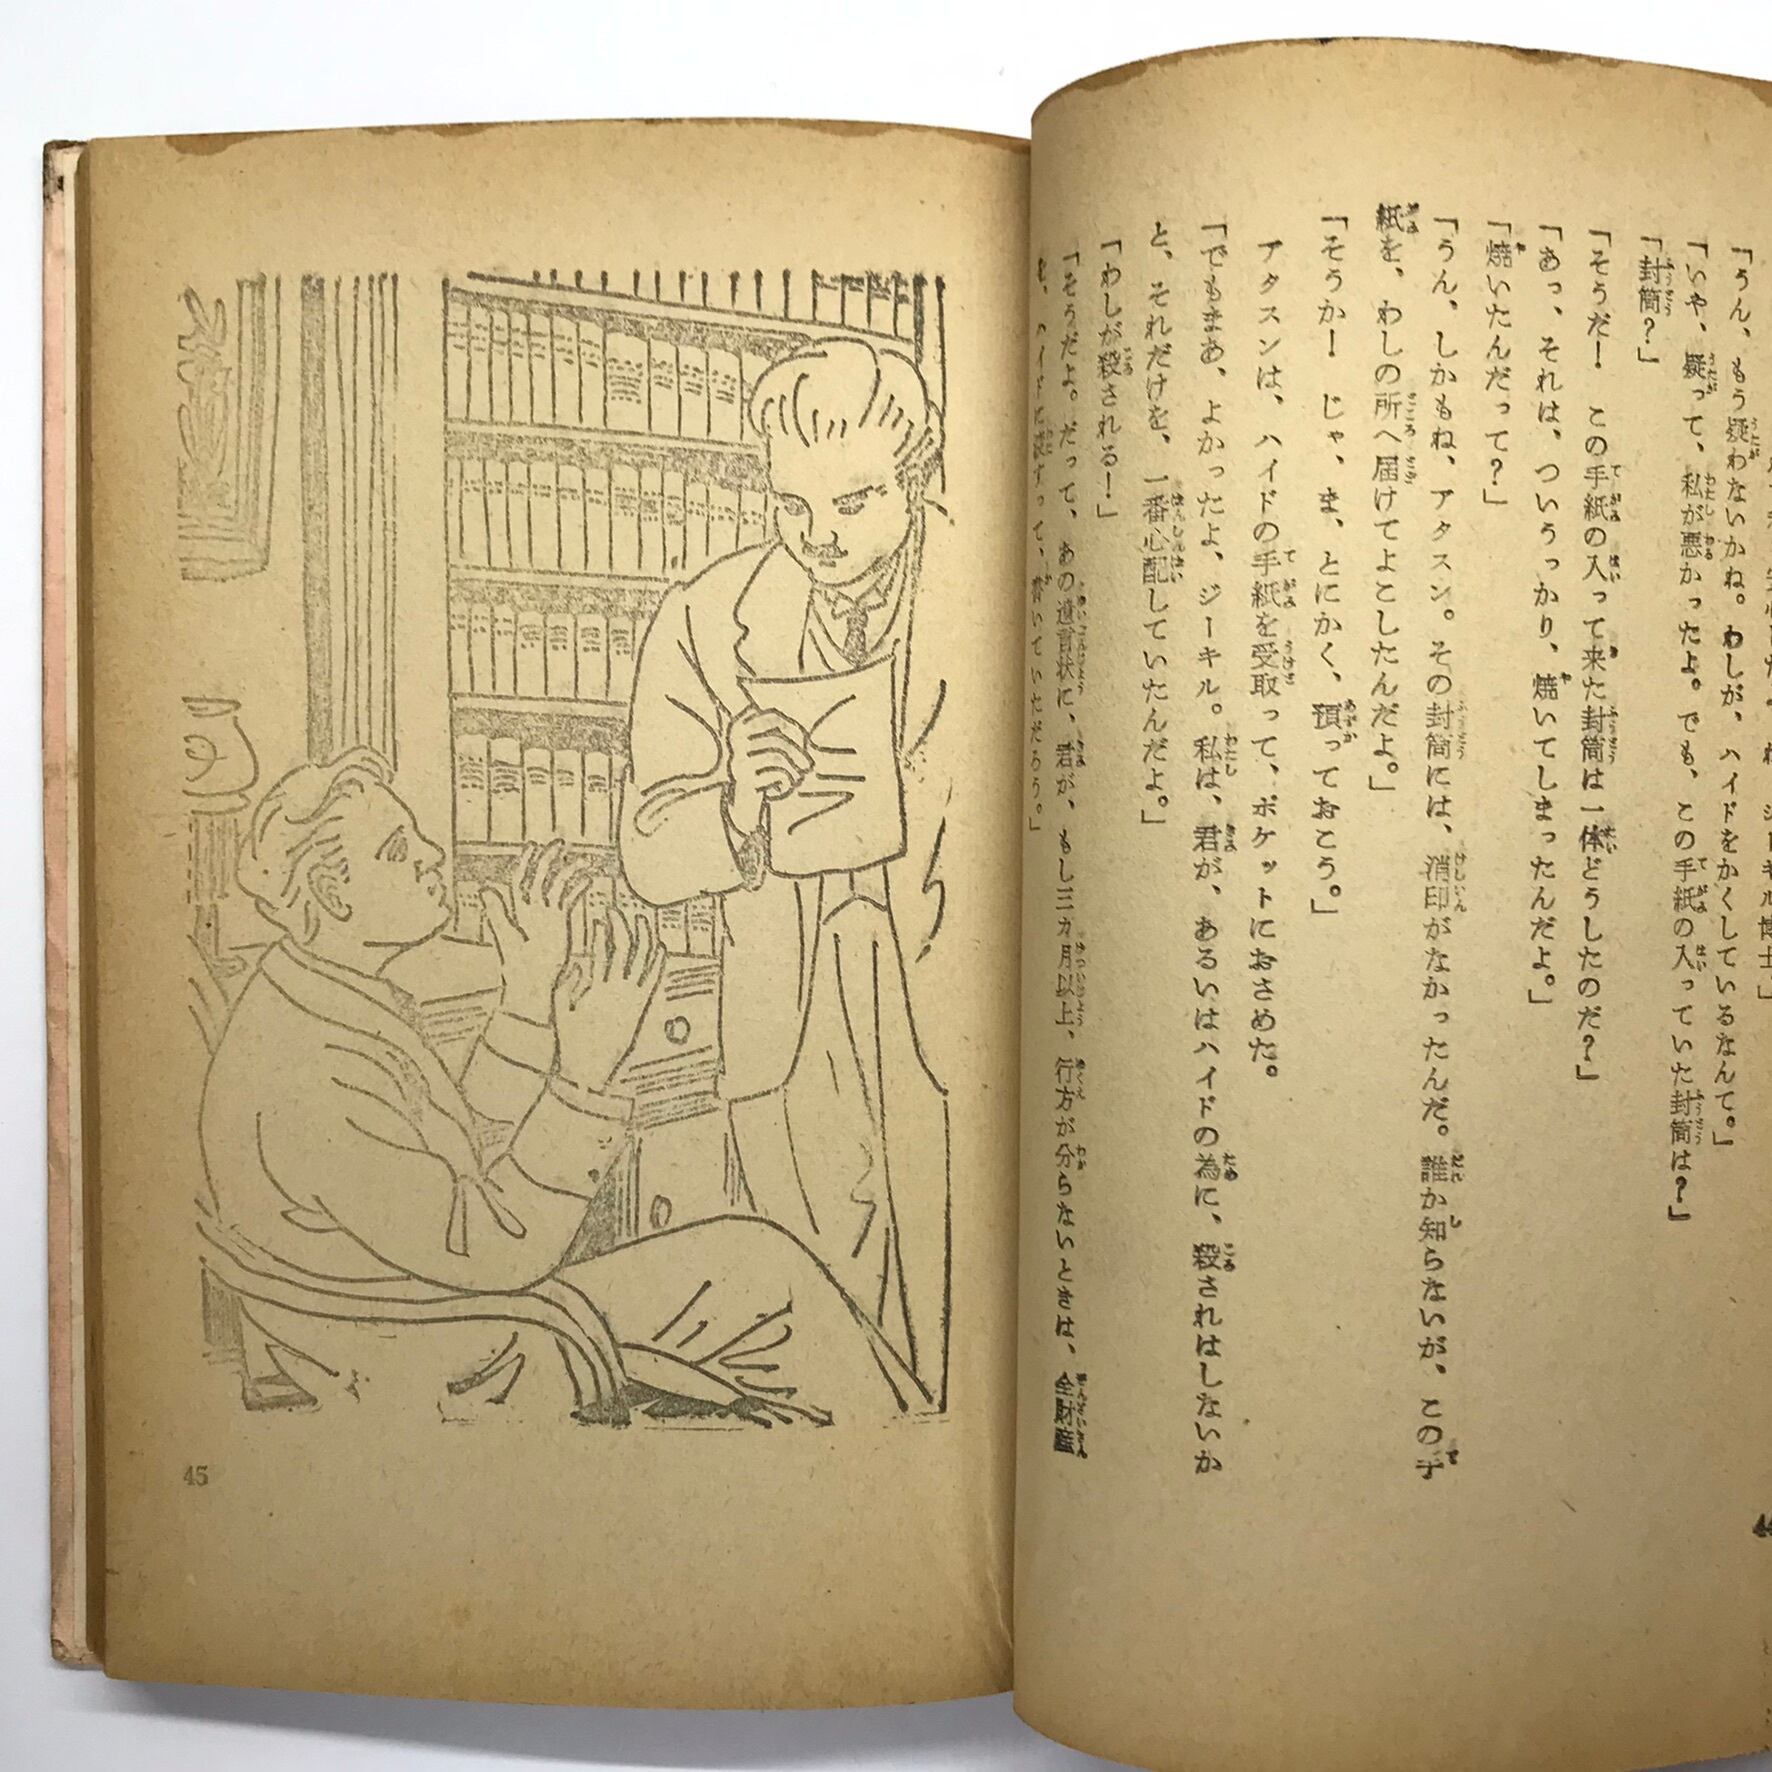 ジーキル博士」
「うん、もう疑わないかね。わしが、ハイドをかくしているなんて。」
「いや、疑って、私が悪かったよ。でも、この手紙の入っていた封筒は？」
「封筒？」
「そうだ！　この手紙の入って来た封筒は一体どうしたのだ？」
「あっ、それは、ついうっかり、焼いてしまったんだよ。」
「焼いたんだって？」
「うん、しかもね、アタスン。その封筒には、消印がなかったんだ。誰か知らないが、この手
紙を、わしの所へ届けてよこしたんだよ。」
「そうか！　じゃ、ま、とにかく、預っておこう。」
アタスンは、ハイドの手紙を受取って、ポケットにおさめた。
「でもまあ、よかったよ、ジーキル。私は、君が、あるいはハイドの為に、殺されはしないか
と、それだけを、一番心配していたんだよ。」
「わしが殺される！」
「そうだよ。だって、あの遺言状に、君が、もし三カ月以上、行方が分らないときは、全財産
を、ハイドに渡すって、書いていただろう。」
45